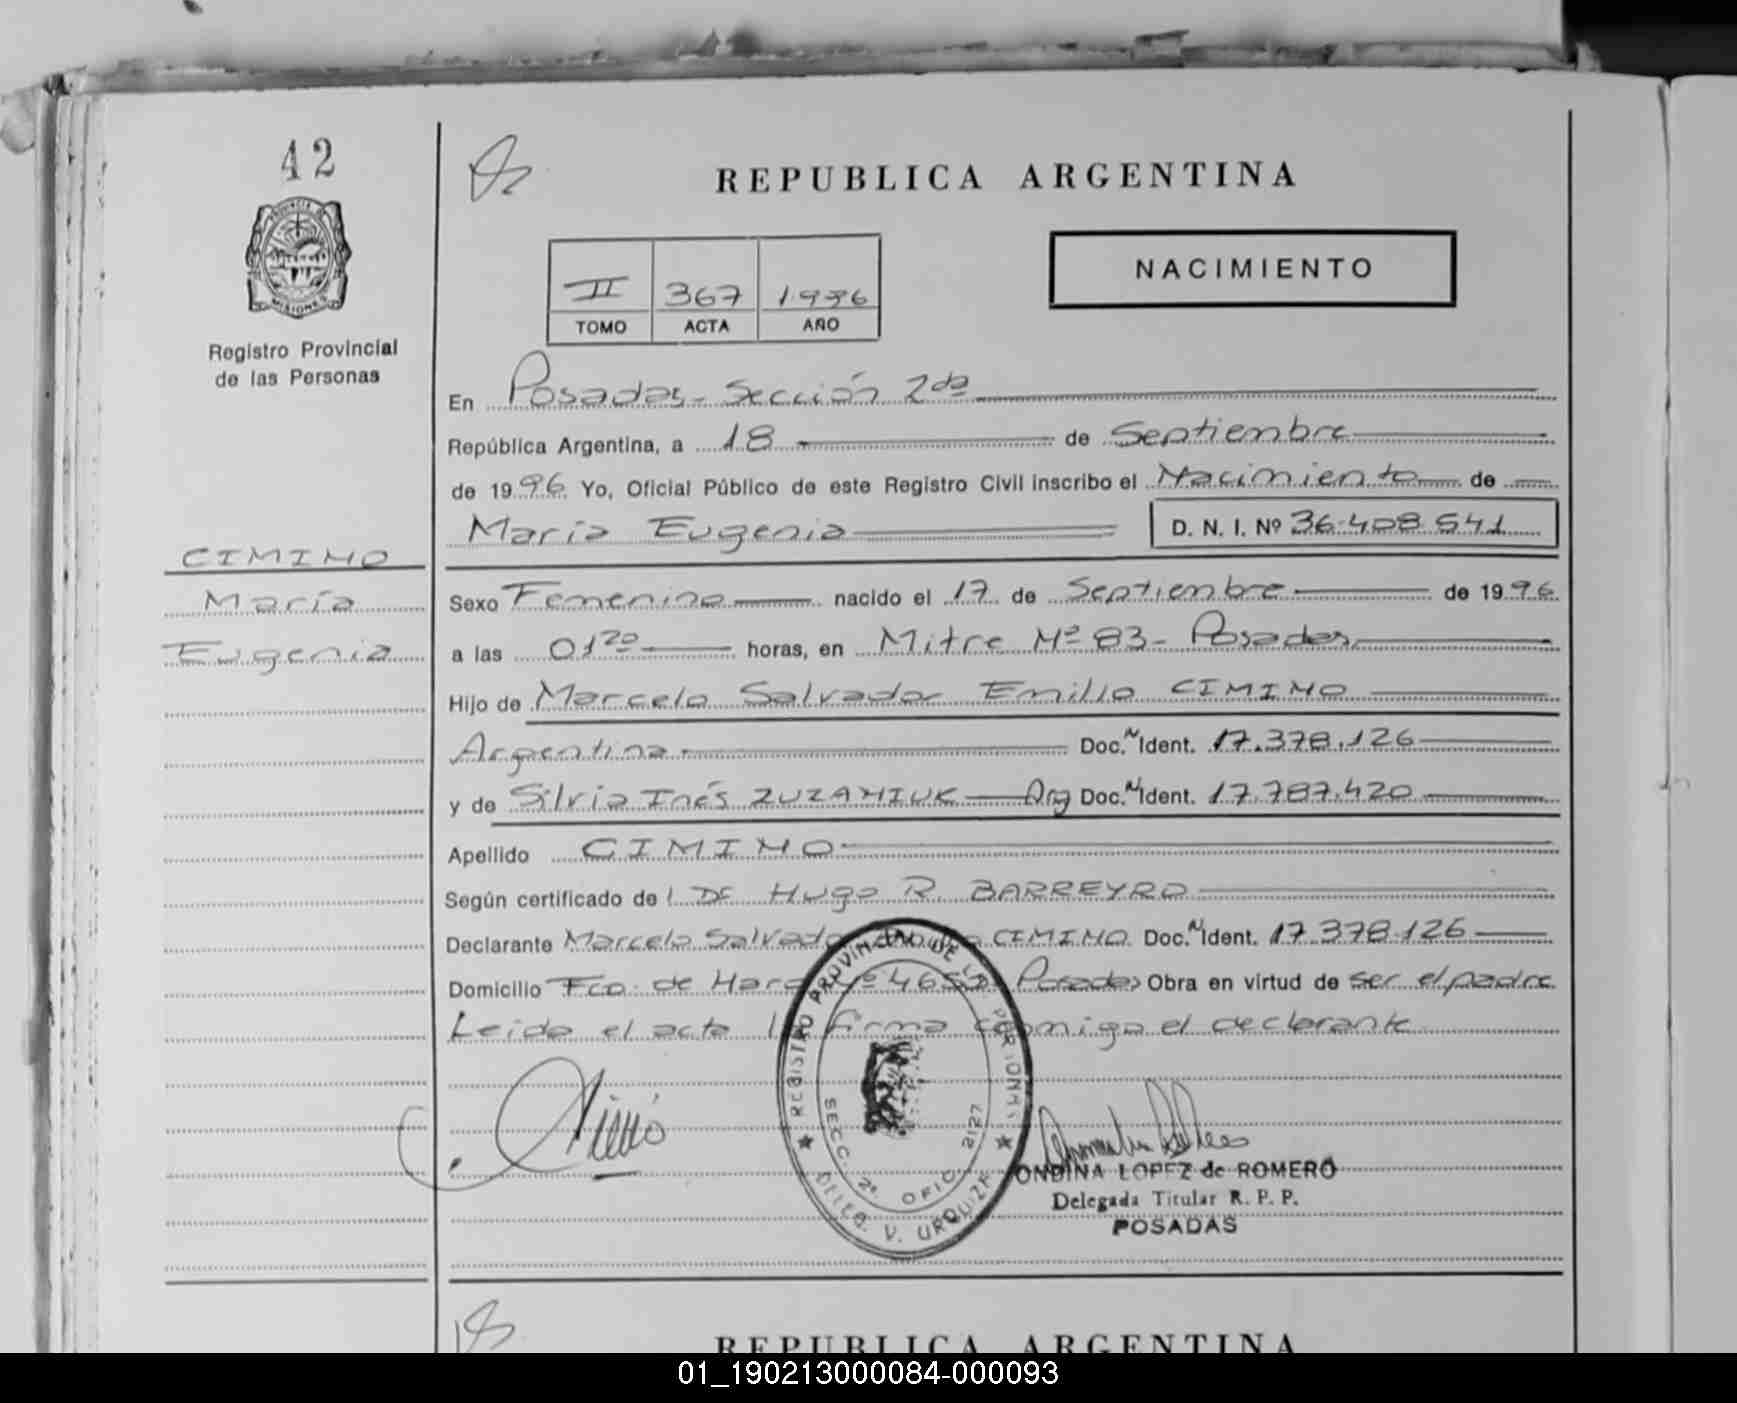 42
PROVINCIA DE
MISIONES
Registro Provincial
de las Personas
REPUBLICA ARGENTINA
NACIMIENTO
II 367 1996
TOMO ACTA AÑO
En Posadas - Sección 2da
República Argentina, a 18 de Septiembre
de 1996 Yo, Oficial Público de este Registro Civil inscribo el Nacimiento de
María Eugenia D. N. I. Nº 36.408.541
CIMINO
María
Eugenia
Sexo Femenino nacido el 17 de Septiembre de 1996
a las 01 20 horas, en Mitre Nº 83 - Posadas
Hijo de Marcelo Salvador Emilio CIMINO
Argentina Doc. N Ident. 17.378.126
y de Silvia Inés ZUZANIUK Arg Doc. N Ident. 17.787.420
Apellido CIMINO
Según certificado de l Dr Hugo R. BARREYRO
Declarante Marcelo Salvador CIMINO Doc. N Ident. 17.378.126
Domicilio Fco. de Haro Nº Posadas Obra en virtud de ser el padre
Leida el acta la firma conmigo el declarante
REGISTRO PROVINCIAL DE LAS PERSONAS
SECC. 2ª OFIC. 2127
DELEG. V. URQUIZA
ONDINA LOPEZ de ROMERO
Delegada Titular R. P. P.
POSADAS
REPUBLICA ARGENTINA
01_190213000084-000093